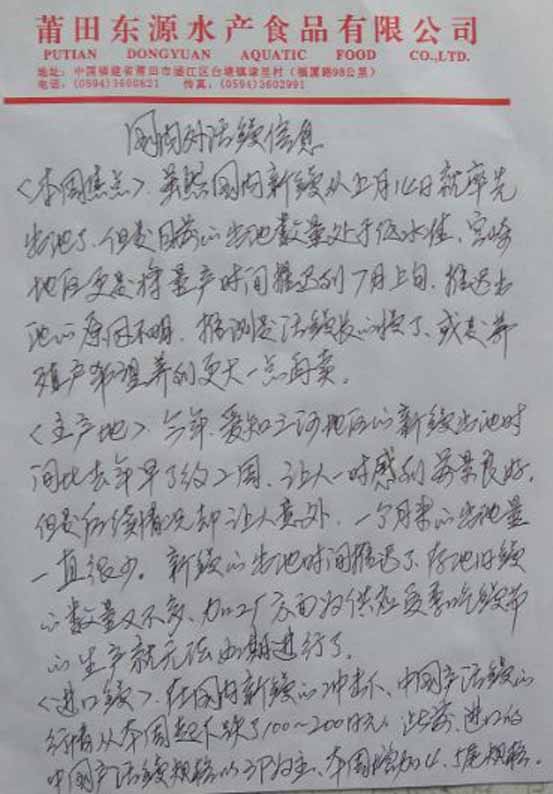 莆田东源水产食品有限公司
PUTIAN DONGYUAN AQUATIC FOOD CO.,LTD.
地址:中国福建省莆田市涵江区白塘镇津里村(福厦路98公里)
电话:(0594)3600821 传真:(0594)3602991
国内对活鳗信息
<本周焦点>、虽然国内新鳗从五月14日就率先
出池了、但是目前的出池数量处于低水准、宫崎
地区更是将量产时间推迟到7月上旬。推迟出
池的原因不明、推测是活鳗长的慢了、或是养
殖户希望养的更大一点再卖。
<主产地>、今年、爱知三河地区的新鳗出池时
间比去年早了约2周、让人一时感到前景良好。
但是后续情况却让人意外、一个月来的出池量
一直很少。新鳗的出池时间推迟了、存池旧鳗
的数量又不多、加工厂方面为供应夏季吃鳗节
的生产就无法如期进行了。
<进口鳗>、在国内新鳗的冲击下、中国产活鳗的
行情从本周起下跌了100~200日元。此前、进口的
中国产活鳗规格以3P为主、本周增加4、5尾规格。